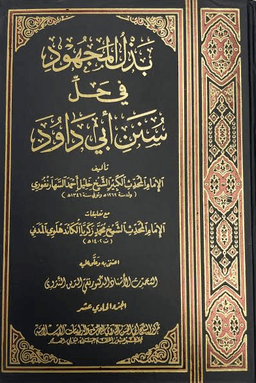 بذل المجهود
في حل
سنن أبي داود
تأليف
الإمام المحدث الكبير الشيخ خليل أحمد السهارنفوري
ولد سنة ١٢٦٩هـ وتوفي سنة ١٣٤٦هـ
مع تعليقات
الإمام المحدث الشيخ محمد زكريا الكاندهلوي المدني
(ت ١٤٠٢هـ)
اعتنى به وعلق عليه
الأستاذ الدكتور تقي الدين الندوي
الجزء الحادي عشر